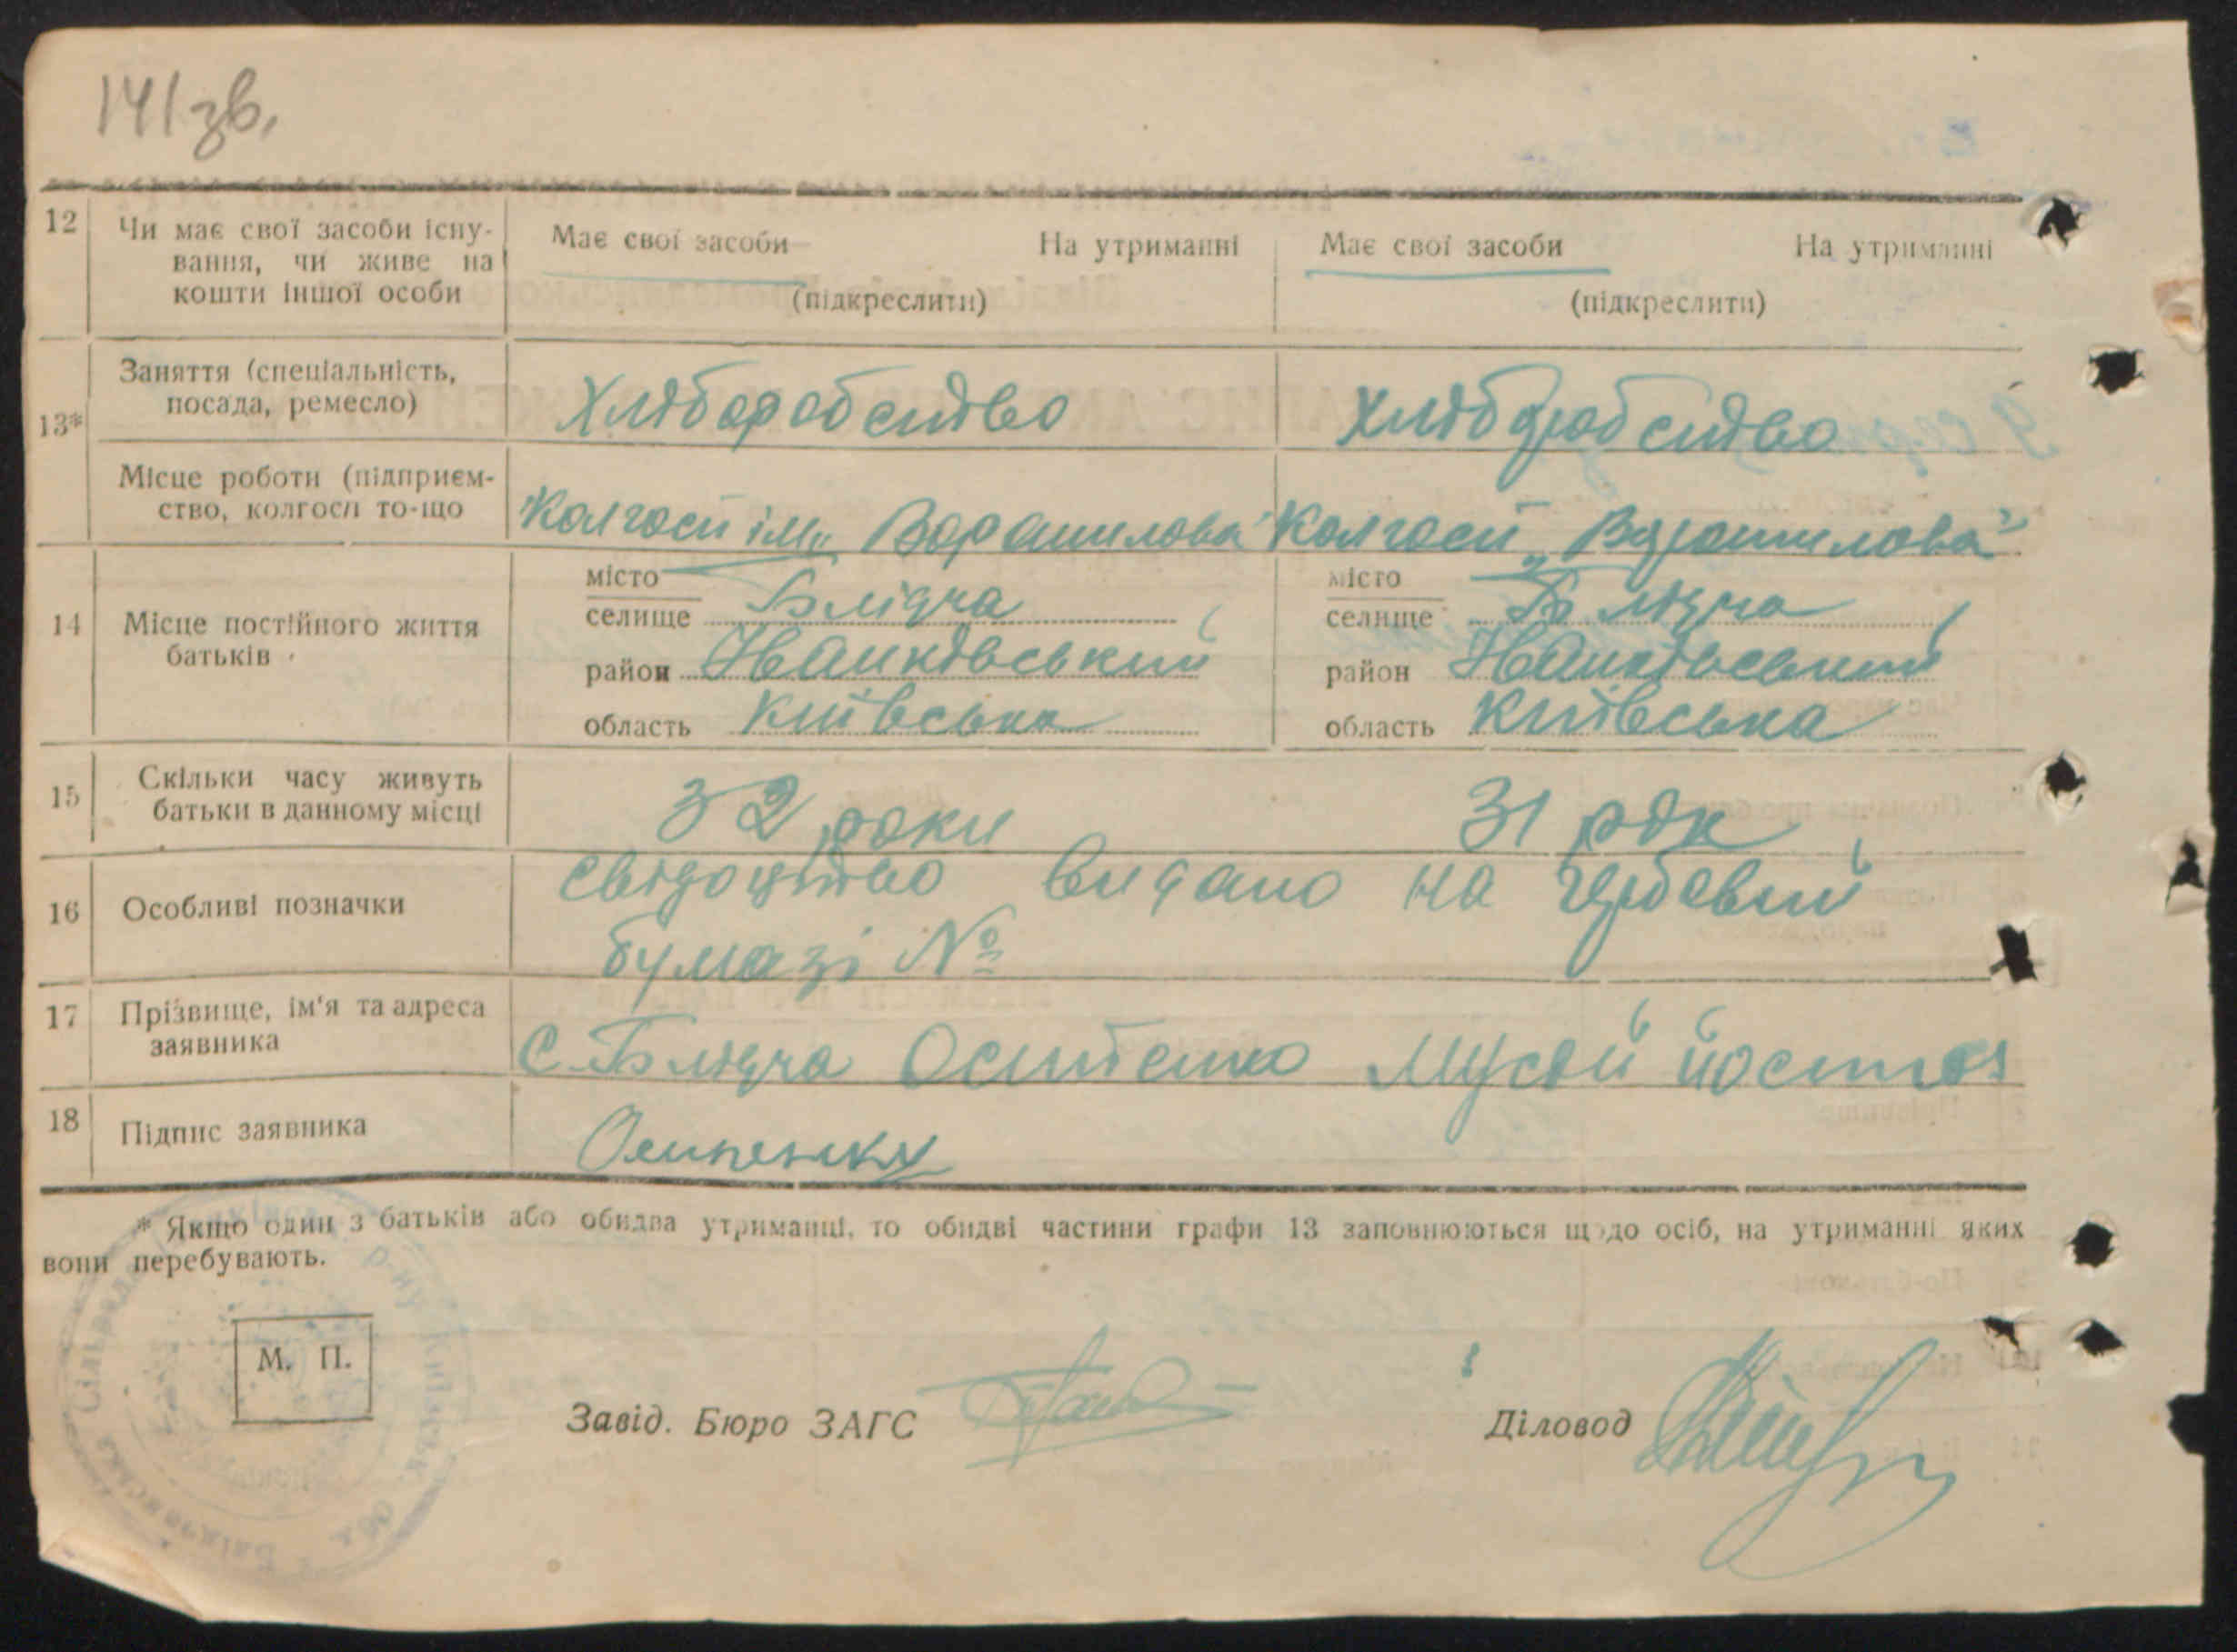 141зв.
12 Чи має свої засоби існу-
вання, чи живе на
кошти іншої особи
Має свої засоби На утриманні
(підкреслити)
Має свої засоби На утриманні
(підкреслити)
13* Заняття (спеціальність,
посада, ремесло)
Хліборобство
Хліборобство
Місце роботи (підприєм-
ство, колгосп то-що
Колгосп ім. „Ворошилова"
Колгосп „Ворошилова"
14 Місце постійного життя
батьків
місто
селище Блідча
район Іванківський
область Київська
місто
селище Блідча
район Іванківський
область Київська
15 Скільки часу живуть
батьки в данному місці
32 роки
31 рік
16 Особливі позначки
свідоцтво видано на гербовій
бумазі №
17 Прізвище, ім'я та адреса
заявника
С. Блідча Осипенко Мусій
18 Підпис заявника
* Якщо один з батьків або обидва утриманці, то обидві частини графи 13 заповнюються щодо осіб, на утриманні яких
вони перебувають.
М. П.
Завід. Бюро ЗАГС
Діловод